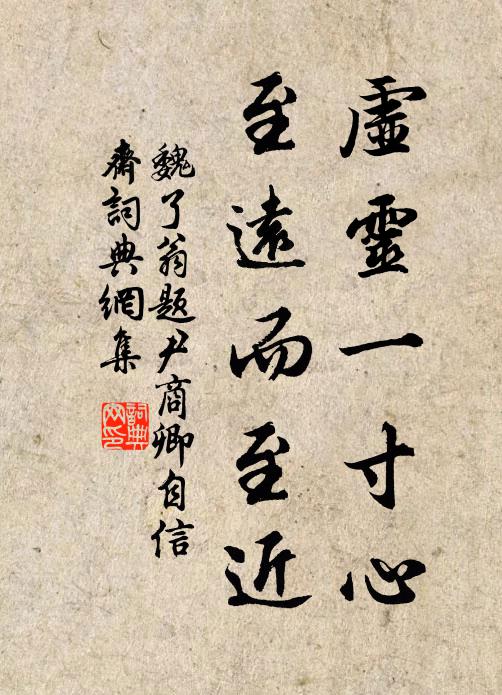 虛靈一寸心
至遠而至近
魏了翁題尹商卿自信
齋詞典網集
詞典
网印